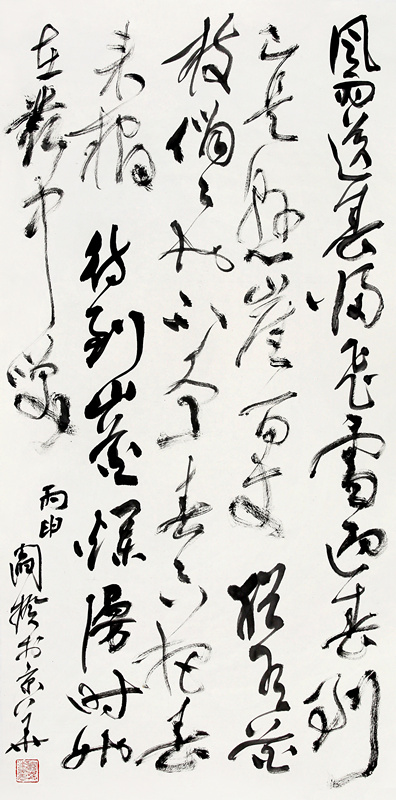 風雨送春归飛雪迎春到
已是懸崖百丈冰猶有花
枝俏々也不争春只把春
来報待到山花爛漫时她
在叢中笑
丙申 阎 於京华